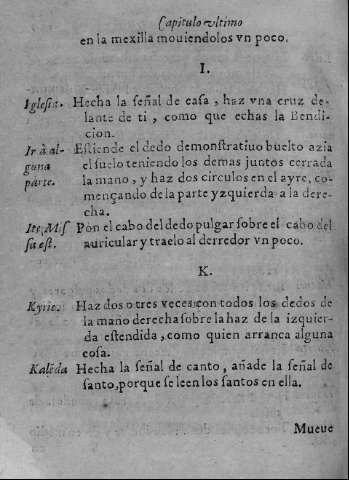 Capitulo vltimo
en la mexilla mouiendolos vn poco.
I.
Iglesia. Hecha la señal de casa, haz vna cruz de-
lante de ti, como que echas la Bendi-
cion.
Ir à al- Estiende el dedo demonstratiuo buelto azia
guna el suelo teniendo los demas juntos cerrada
parte. la mano, y haz dos circulos en el ayre, co-
mençando de la parte yzquierda a la dere-
cha.
Ite, Mis Pon el cabo del dedo pulgar sobre el cabo del
sa est. auricular y traelo al derredor vn poco.
K.
Kyrie. Haz dos o tres veces con todos los dedos de
la mano derecha sobre la haz de la izquier-
da estendida, como quien arranca alguna
cosa.
Kalēda Hecha la señal de canto, añade la señal de
santo, porque se leen los santos en ella.
Mueue